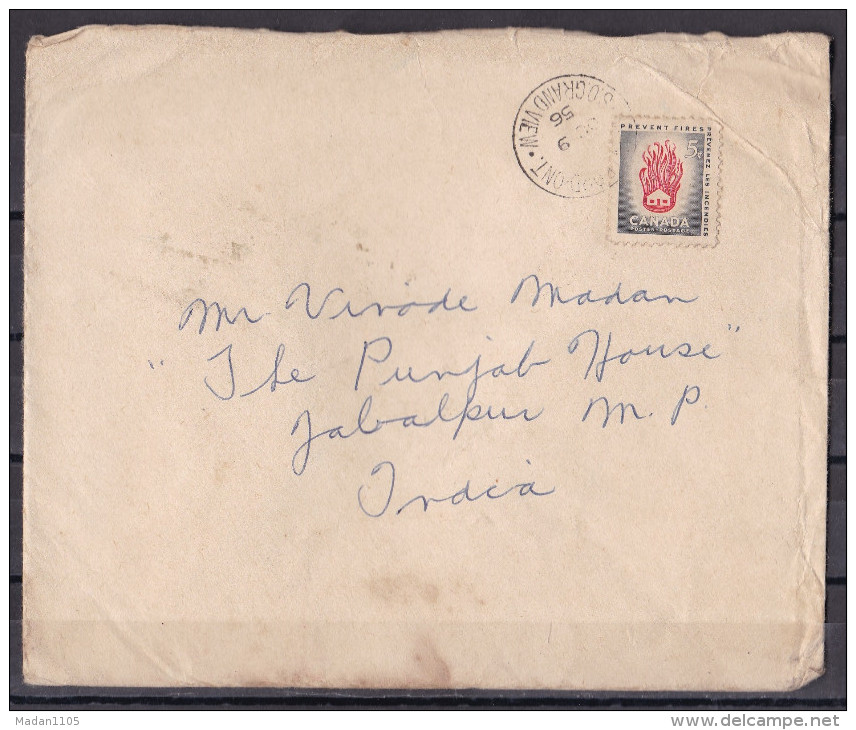 S.O. GRAND VIEW • ONT.
9
56
PREVENT FIRES
PRÉVENEZ LES INCENDIES
5c
CANADA
POSTES-POSTAGE
Mr Vinode Madan
"The Punjab House"
Jabalpur M.P.
India
Madan1105
www.delcampe.net